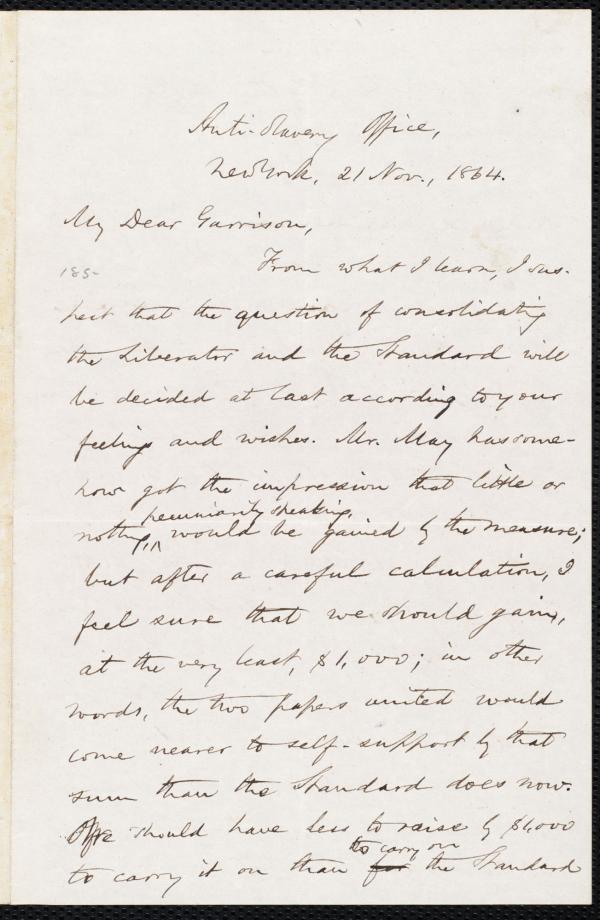 Anti-Slavery Office,
New York, 21 Nov., 1864.
My Dear Garrison,
185-
From what I learn, I sus-
pect that the question of consolidating
the Liberator and the Standard will
be decided at last according to your
feelings and wishes. Mr. May has some-
how got the impression that little or
pecuniarily speaking,
nothing, ^ would be gained by the measure;
but after a careful calculation, I
feel sure that we should gain,
at the very least, $1,000; in other
words, the two papers united would
come nearer to self-support by that
sum than the Standard does now.
We should have less to raise by $1,000
to carry on
to carry it on than for the Standard